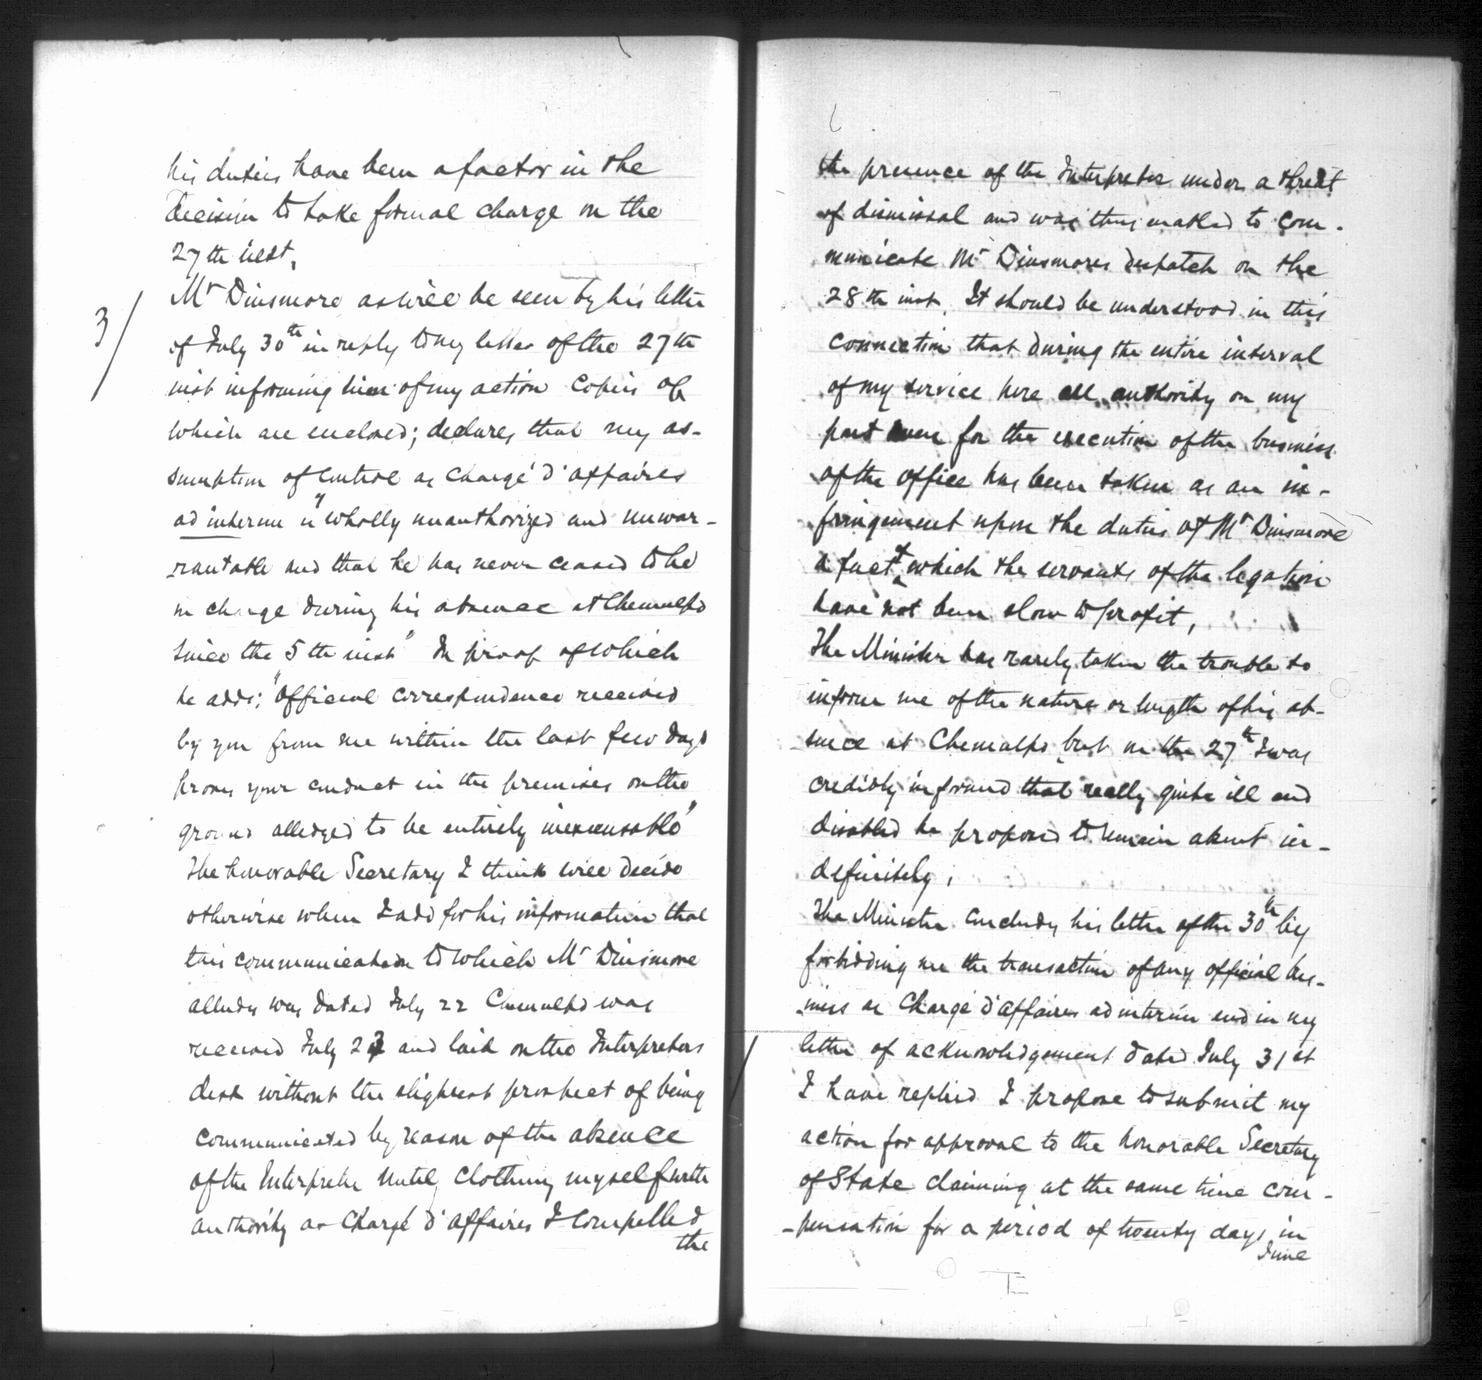 his duties have been a factor in the
decision to take formal charge on the
27th inst,
3/
Mr Dinsmore as will be seen by his letter
of July 30th in reply to my letter of the 27th
inst informing him of my action copies of
which are enclosed; declares that my as-
sumption of control as Chargé d'affaires
ad interim is "wholly unauthorized and unwar-
rantable and that he has never ceased to be
in charge during his absence at Chemulpo
since the 5th inst" In proof of which
he adds; "Official correspondence received
by you from me within the last few days
proves your conduct in the premises on the
ground alledged to be entirely inexcusable"
The honorable Secretary I think will decide
otherwise when I add for his information that
this communication to which Mr Dinsmore
alludes was dated July 22 Chemulpo was
received July 23 and laid on the Interpreters
desk without the slightest prospect of being
communicated by reason of the absence
of the Interpreter until, clothing myself with
authority as Chargé d'affaires I compelled
the
the presence of the Interpreter under a threat
of dismissal and was thus enabled to com-
municate Mr Dinsmores despatch on the
28th inst. It should be understood in this
connection that during the entire interval
of my service here all authority on my
part even for the execution of the business
of the office has been taken as an in-
fringement upon the duties of Mr Dinsmore
a fact which the servants of the legation
have not been slow to profit,
The Minister has rarely taken the trouble to
inform me of the nature or length of his ab-
sence at Chemulpo but on the 27th I was
credibly informed that really quite ill and
disabled he proposed to remain absent in-
definitely,
The Minister concludes his letter of the 30th by
forbidding me the transaction of any official bus-
iness as Chargé d'affaires ad interim and in my
letter of acknowledgement dated July 31st
I have replied I propose to submit my
action for approval to the honorable Secretary
of State claiming at the same time com-
-pensation for a period of twenty days in
June